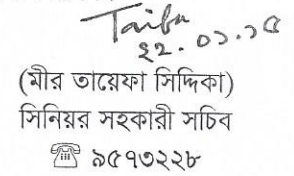 Taifa
২২.০১.১৫
(মীর তায়েফা সিদ্দিকা)
সিনিয়র সহকারী সচিব
☎ ৯৫৭৩২২৮